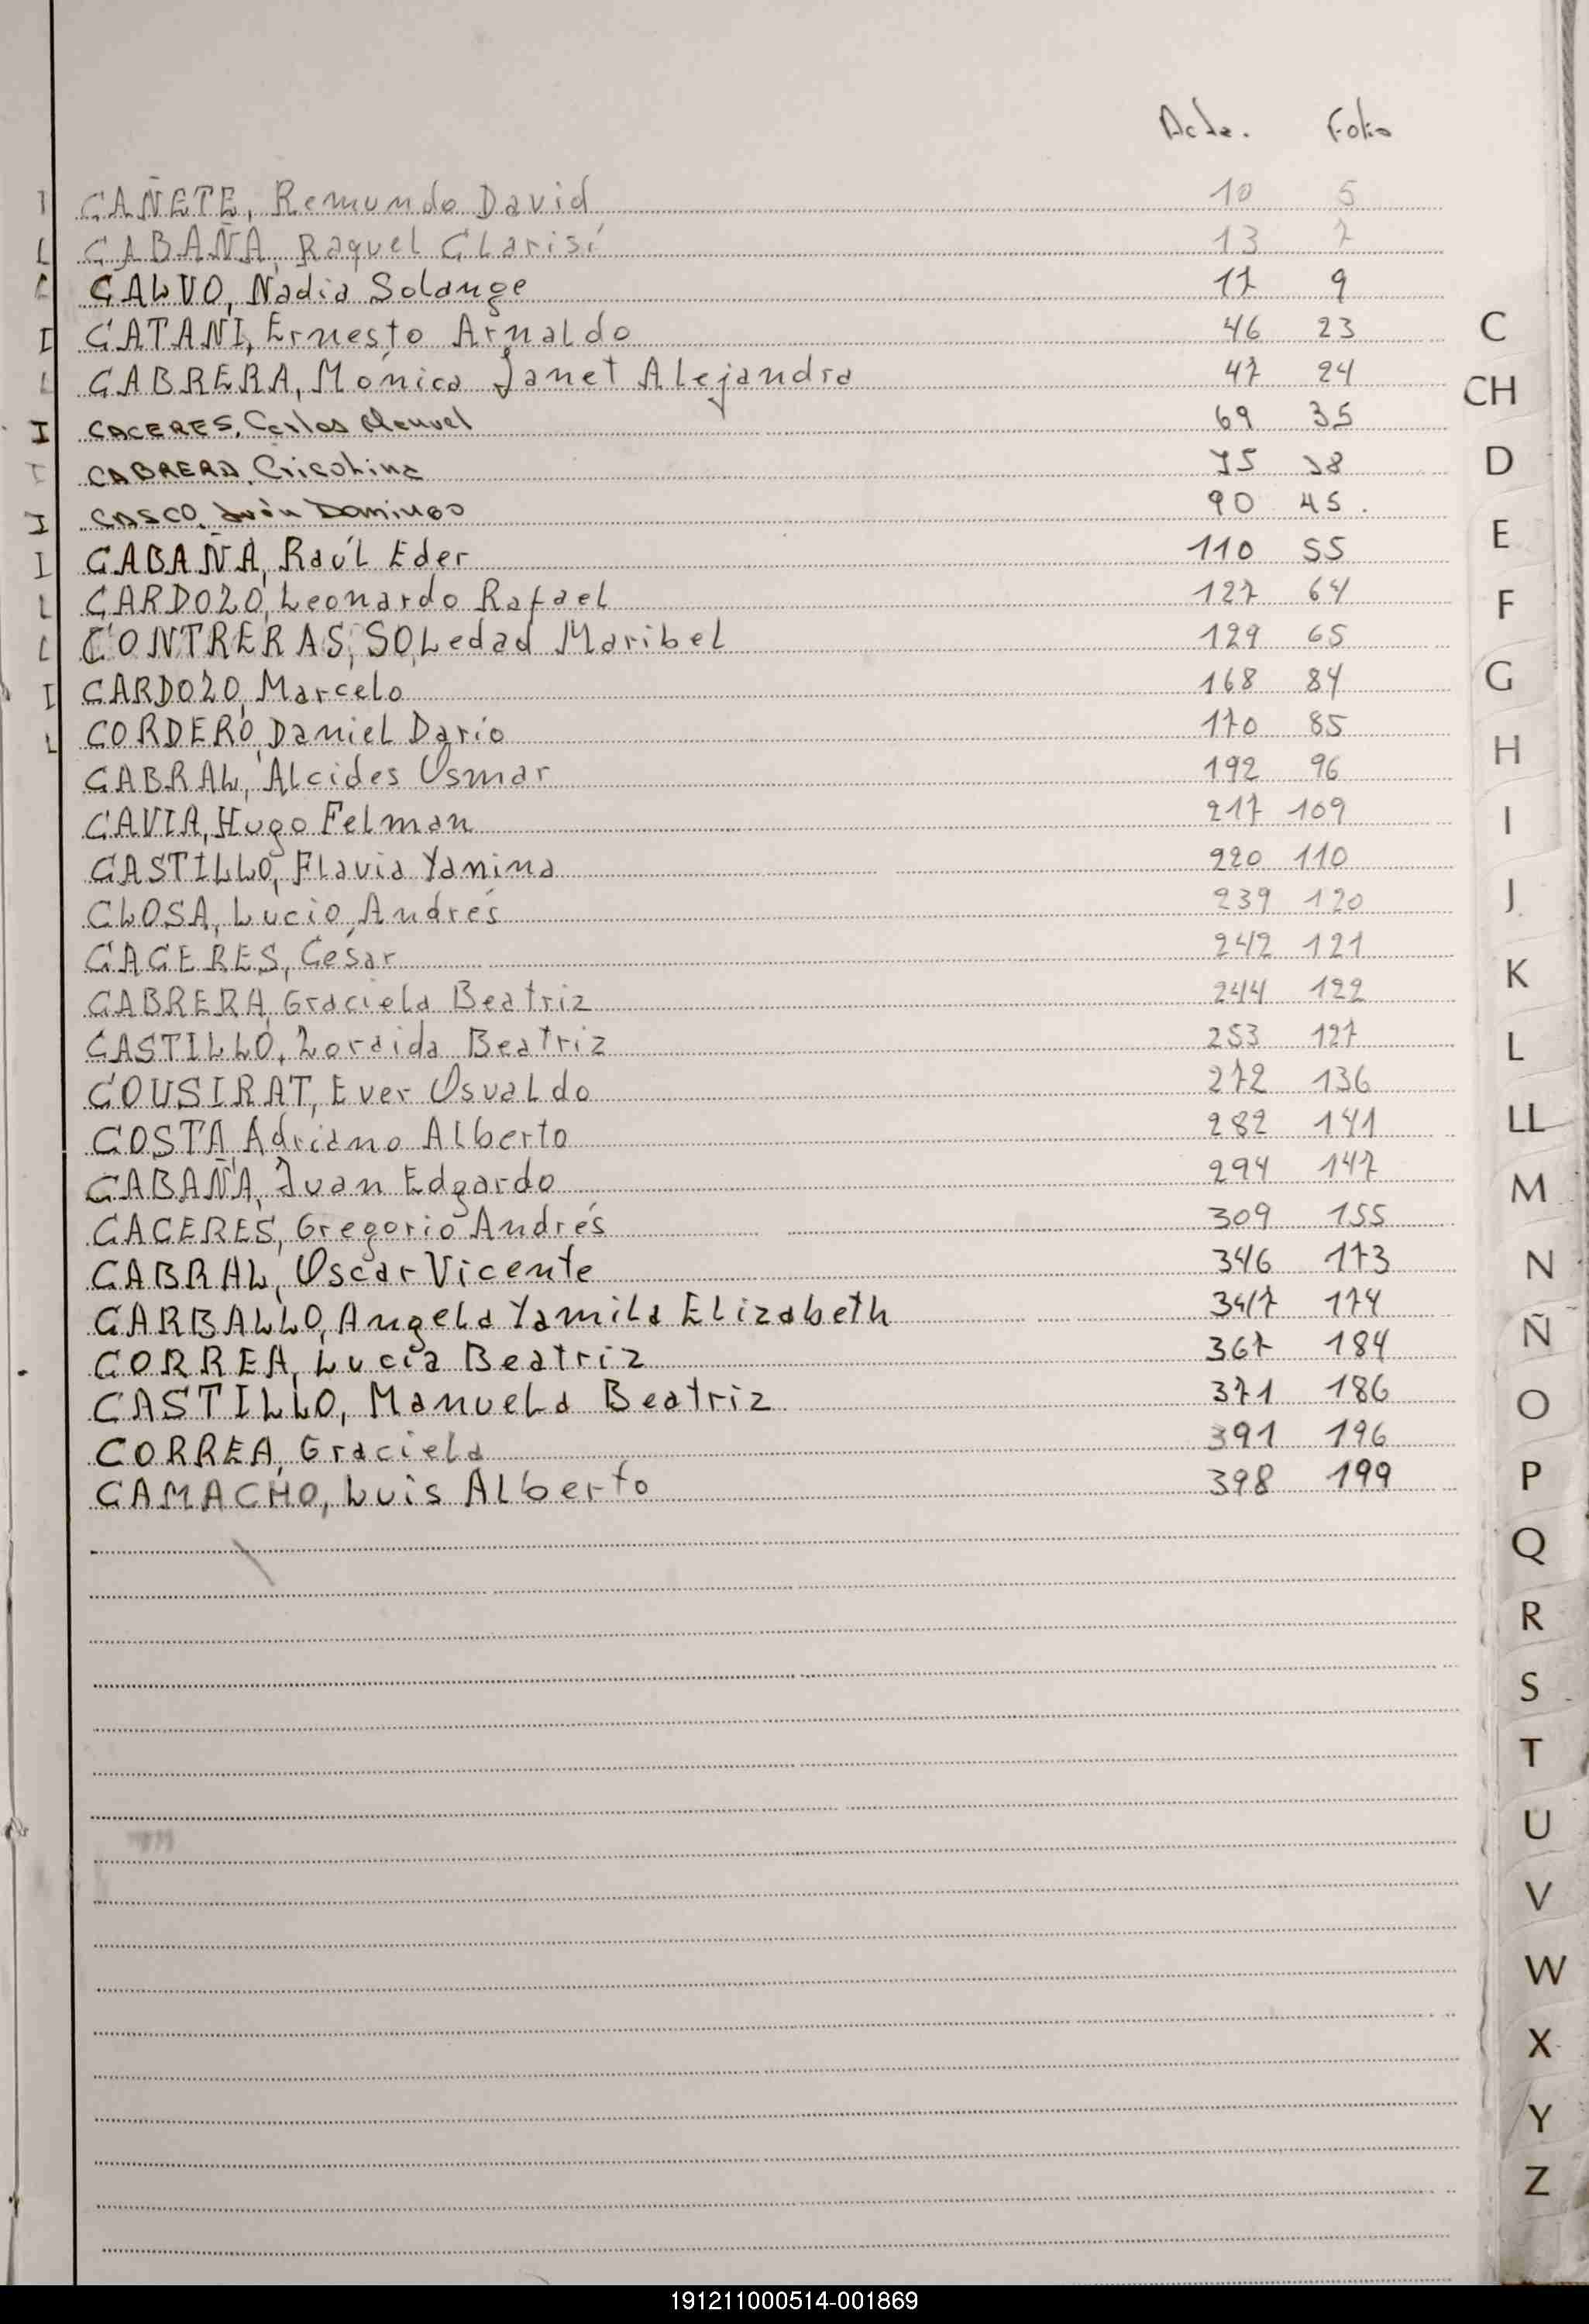 Acta. Folio
I CAÑETE, Remundo David 10 5
L CABAÑA, Raquel Clarisi 13 7
L CALVO, Nadia Solange 17 9
I CATANI, Ernesto Arnaldo 46 23
L CABRERA, Mónica Janet Alejandra 47 24
I CACERES, Carlos Manuel 69 35
I CABRERA, 75 38
I CASCO, Domingo 90 45.
I CABAÑA, Raúl Eder 110 55
L CARDOZO, Leonardo Rafael 127 64
L CONTRERAS, SOLedad Maribel 129 65
I CARDOZO, Marcelo 168 84
L CORDERO, Daniel Dario 170 85
CABRAL, Alcides Osmar 192 96
CAVIA, Hugo Felman 217 109
CASTILLO, Flavia Yanina 220 110
CLOSA, Lucio Andrés 239 120
CACERES, César 242 121
CABRERA, Graciela Beatriz 244 122
CASTILLO, Zoraida Beatriz 253 127
COUSIRAT, Ever Osvaldo 272 136
COSTA, Adriano Alberto 282 141
CABAÑA, Juan Edgardo 294 147
CACERES, Gregorio Andrés 309 155
CABRAL, Oscar Vicente 346 173
CARBALLO, Angela Yamila Elizabeth 347 174
CORREA, Lucia Beatriz 367 184
CASTILLO, Manuela Beatriz 371 186
CORREA, Graciela 391 196
CAMACHO, Luis Alberto 398 199
C
CH
D
E
F
G
H
I
J
K
L
LL
M
N
Ñ
O
P
Q
R
S
T
U
V
W
X
Y
Z
191211000514-001869